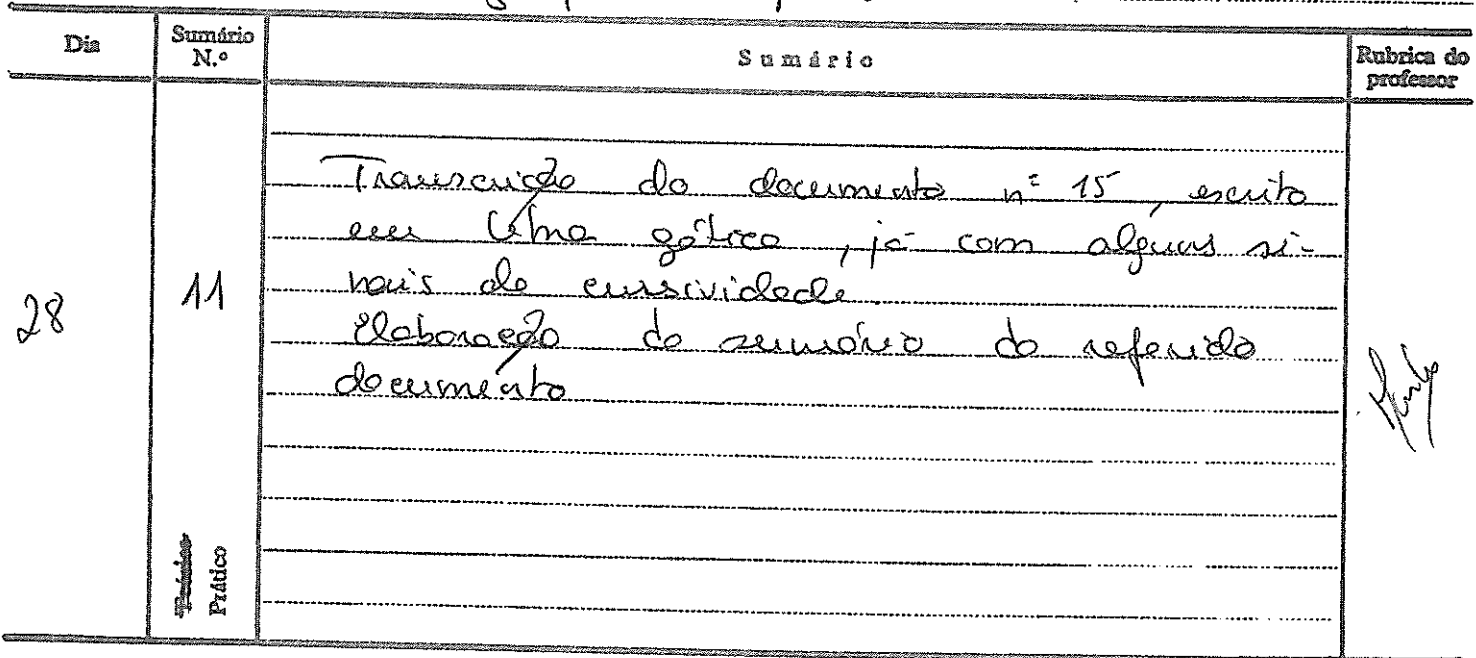 Dia
Sumário N.º
Sumário
Rubrica do professor
28
11
Transcrição do documento nº 15, escrito
em letra gótica, já com alguns si-
nais de cursividade.
Elaboração do sumário do referido
documento
Teórico
Prático